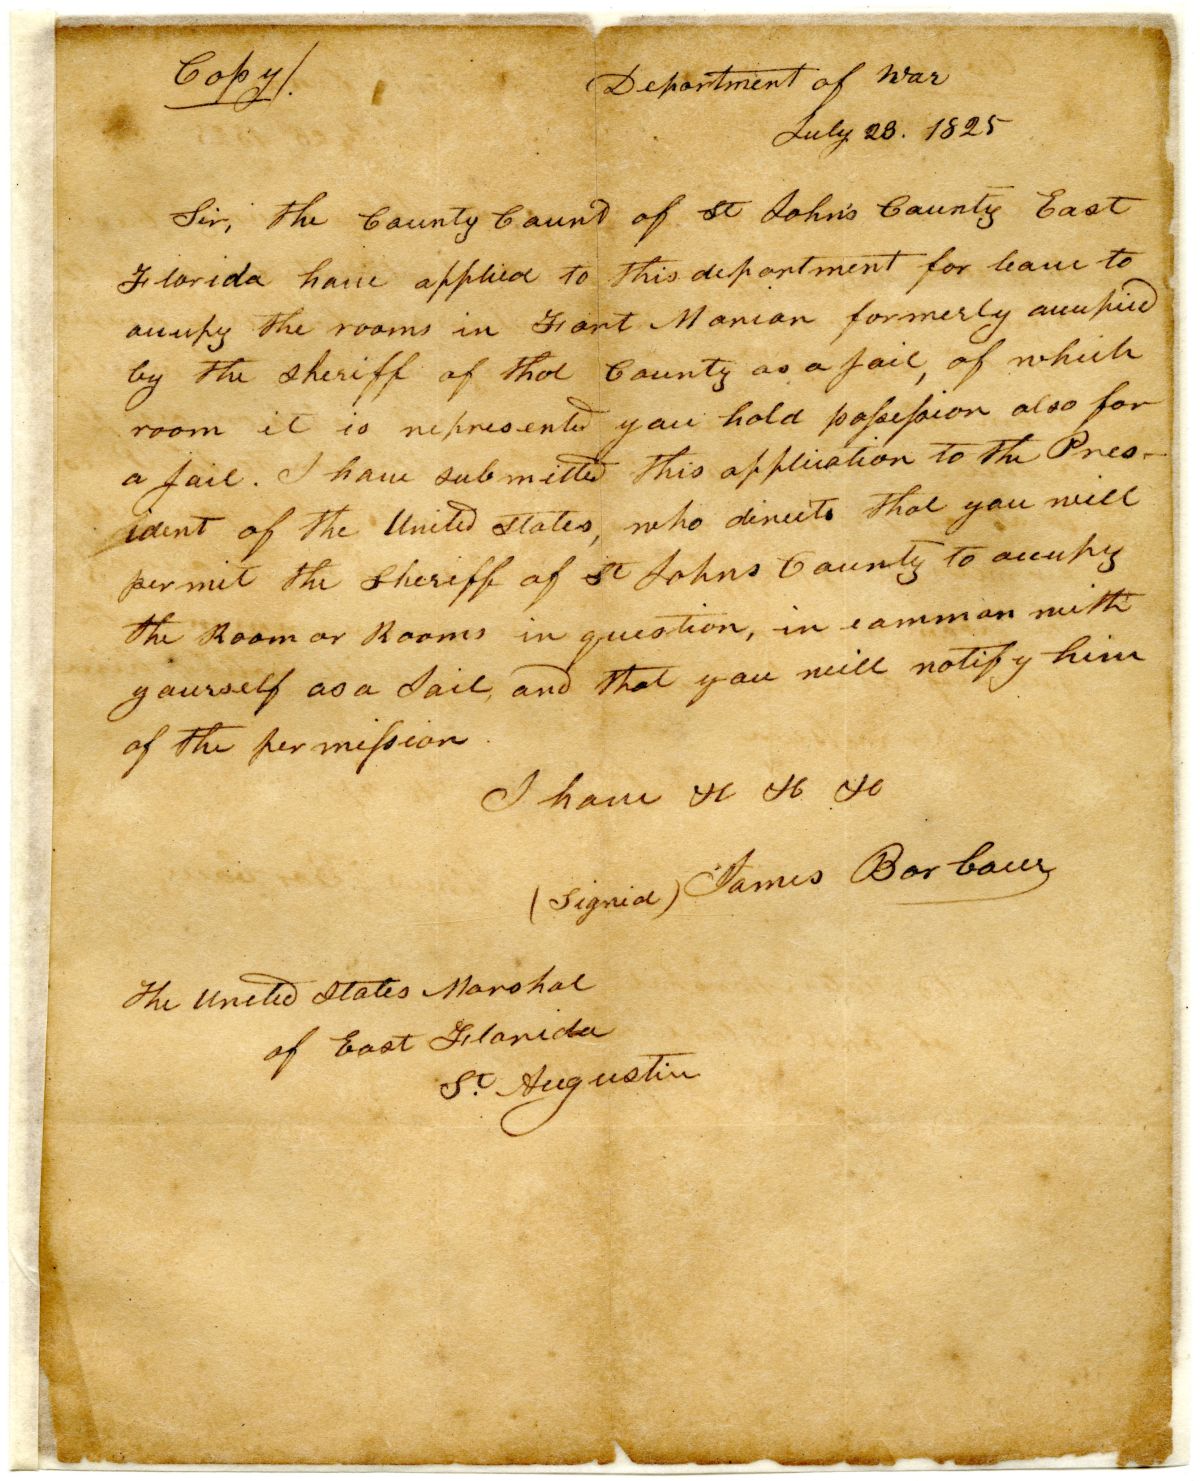 Copy/.
Department of War
July 28. 1825
Sir, the County Count of St John's County East
Florida have applied to this department for leave to
occupy the rooms in Fort Marion formerly occupied
by the Sheriff of that County as a Jail, of which
room it is represented you hold possession also for
a Jail. I have submitted this application to the Pres-
ident of the United States, who directs that you will
permit the Sheriff of St Johns County to occupy
the Room or Rooms in question, in common with
yourself as a Jail, and that you will notify him
of the permission.
I have &c &c &c
(Signed) James Barbour
The United States Marshal
of East Florida
St. Augustin